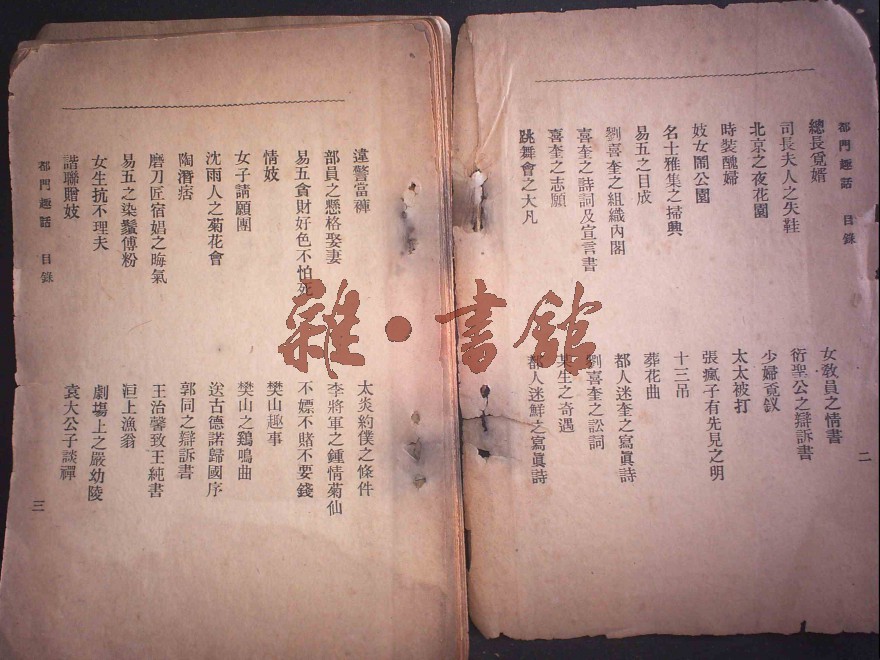 都門趣話 目錄
二
總長覓婿
司長夫人之失鞋
北京之夜花園
時裝醜婦
妓女鬧公園
名士雅集之掃興
易五之目成
劉喜奎之組織內閣
喜奎之詩詞及宣言書
喜奎之志願
跳舞會之大凡
女教員之情書
衍聖公之辯訴書
少婦覓釵
太太被打
張瘋子有先見之明
十三吊
葬花曲
都人迷奎之寫眞詩
劉喜奎之訟詞
某生之奇遇
都人迷鮮之寫眞詩
違警當褲
部員之懸格娶妻
易五貪財好色不怕死
情妓
女子請願團
沈雨人之菊花會
陶潛痞
磨刀匠宿娼之晦氣
易五之染鬚傅粉
女生抗不理夫
諧聯贈妓
太炎約僕之條件
李將軍之鍾情菊仙
不嫖不賭不要錢
樊山趣事
樊山之鷄鳴曲
送古德諾歸國序
郭同之辯訴書
王治馨致王純書
洹上漁翁
劇場上之嚴幼陵
袁大公子談禪
都門趣話 目錄
三
雜·書館